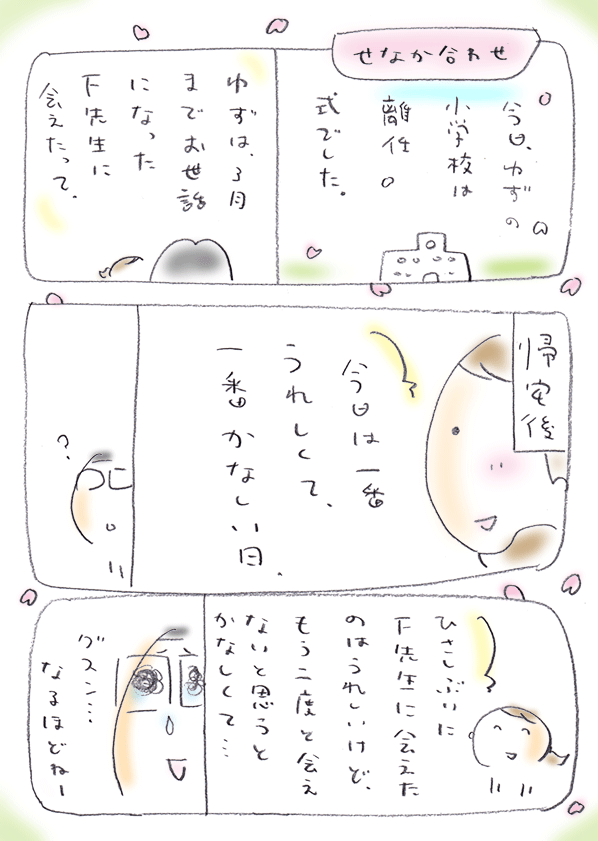 せなか合わせ
今日、ゆずの
小学校は
離任
式でした。
ゆずは、3月
までお世話
になった
下先生に
会えたって。
帰宅後
今日は一番
うれしくて、
一番かなしい日.
?
ひさしぶりに
下先生に会えた
のはうれしいけど、
もう二度と会え
ないと思うと
かなしくて…
グスン…
なるほどねー